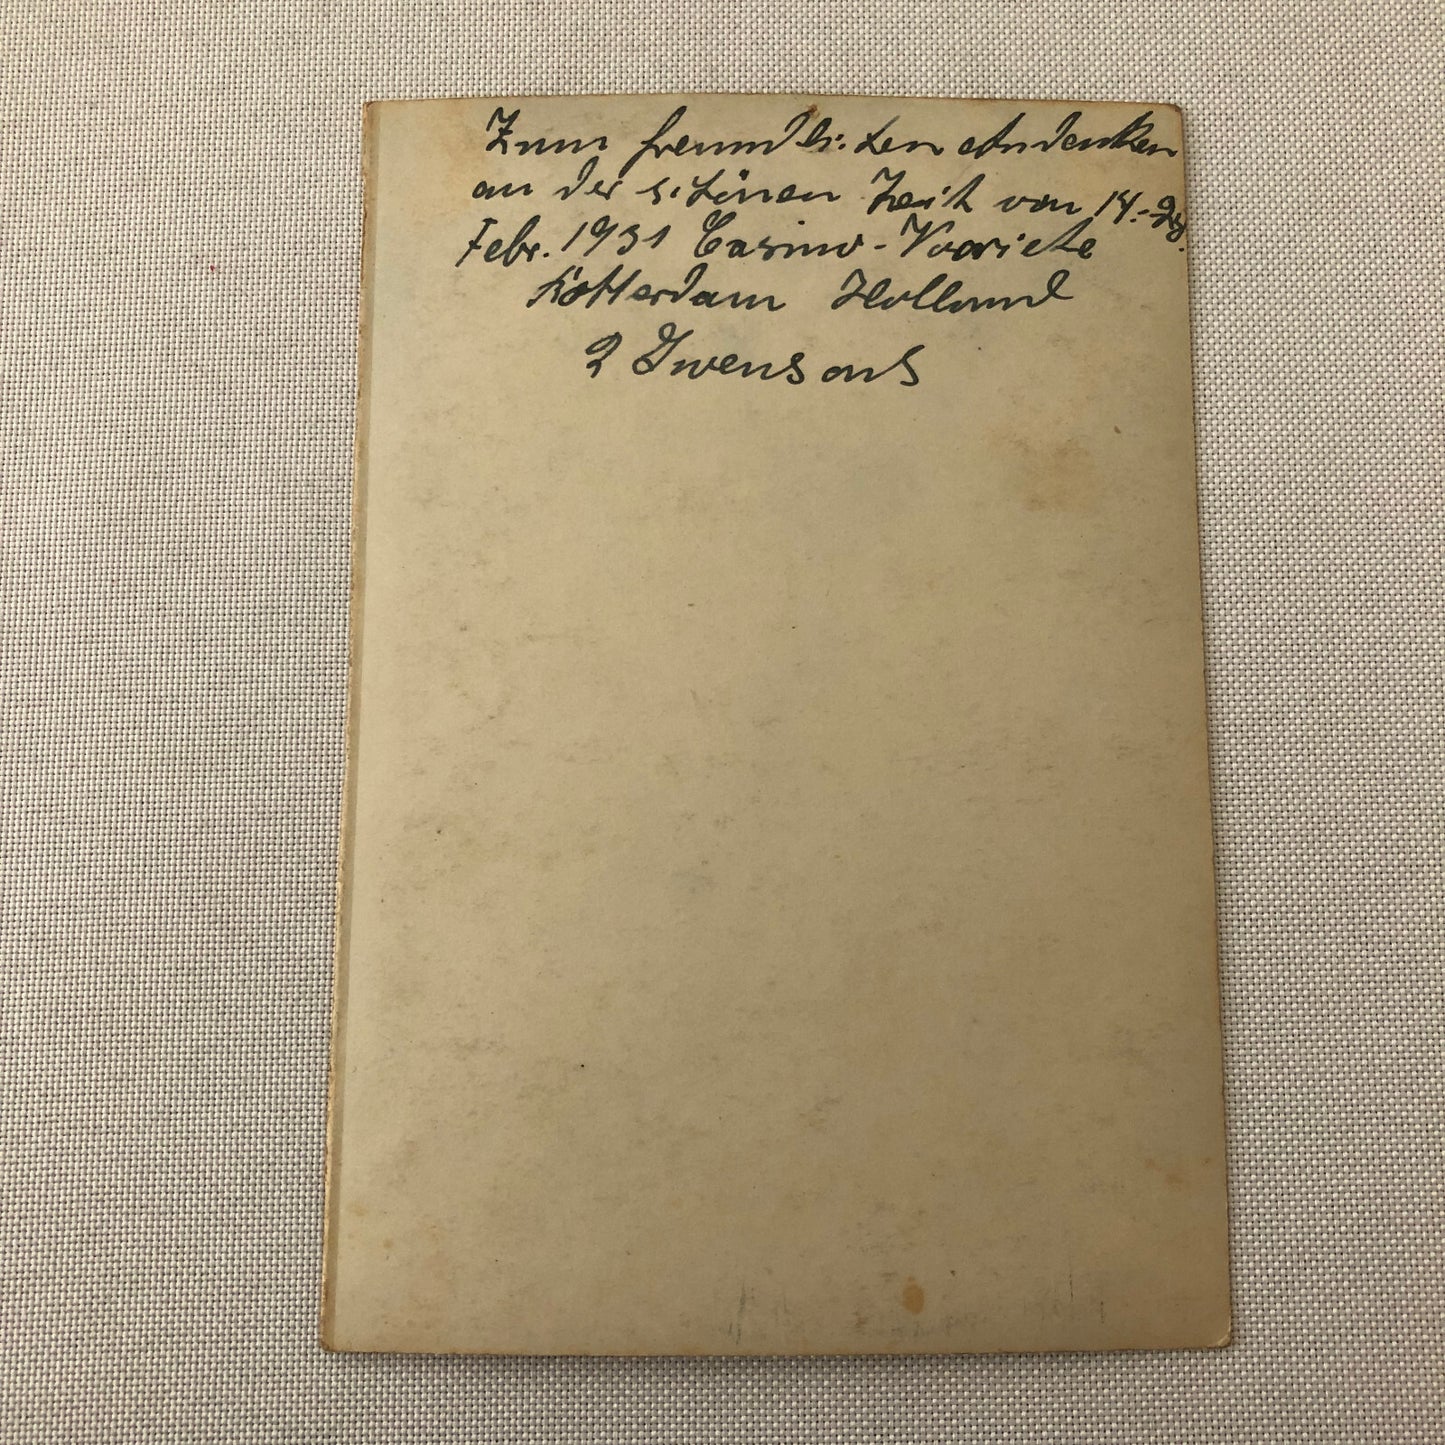 Zum freundlichen Andenken
an der schönen Zeit von 14.-28.
Febr. 1931 Casino-Variete
Rotterdam Holland
2